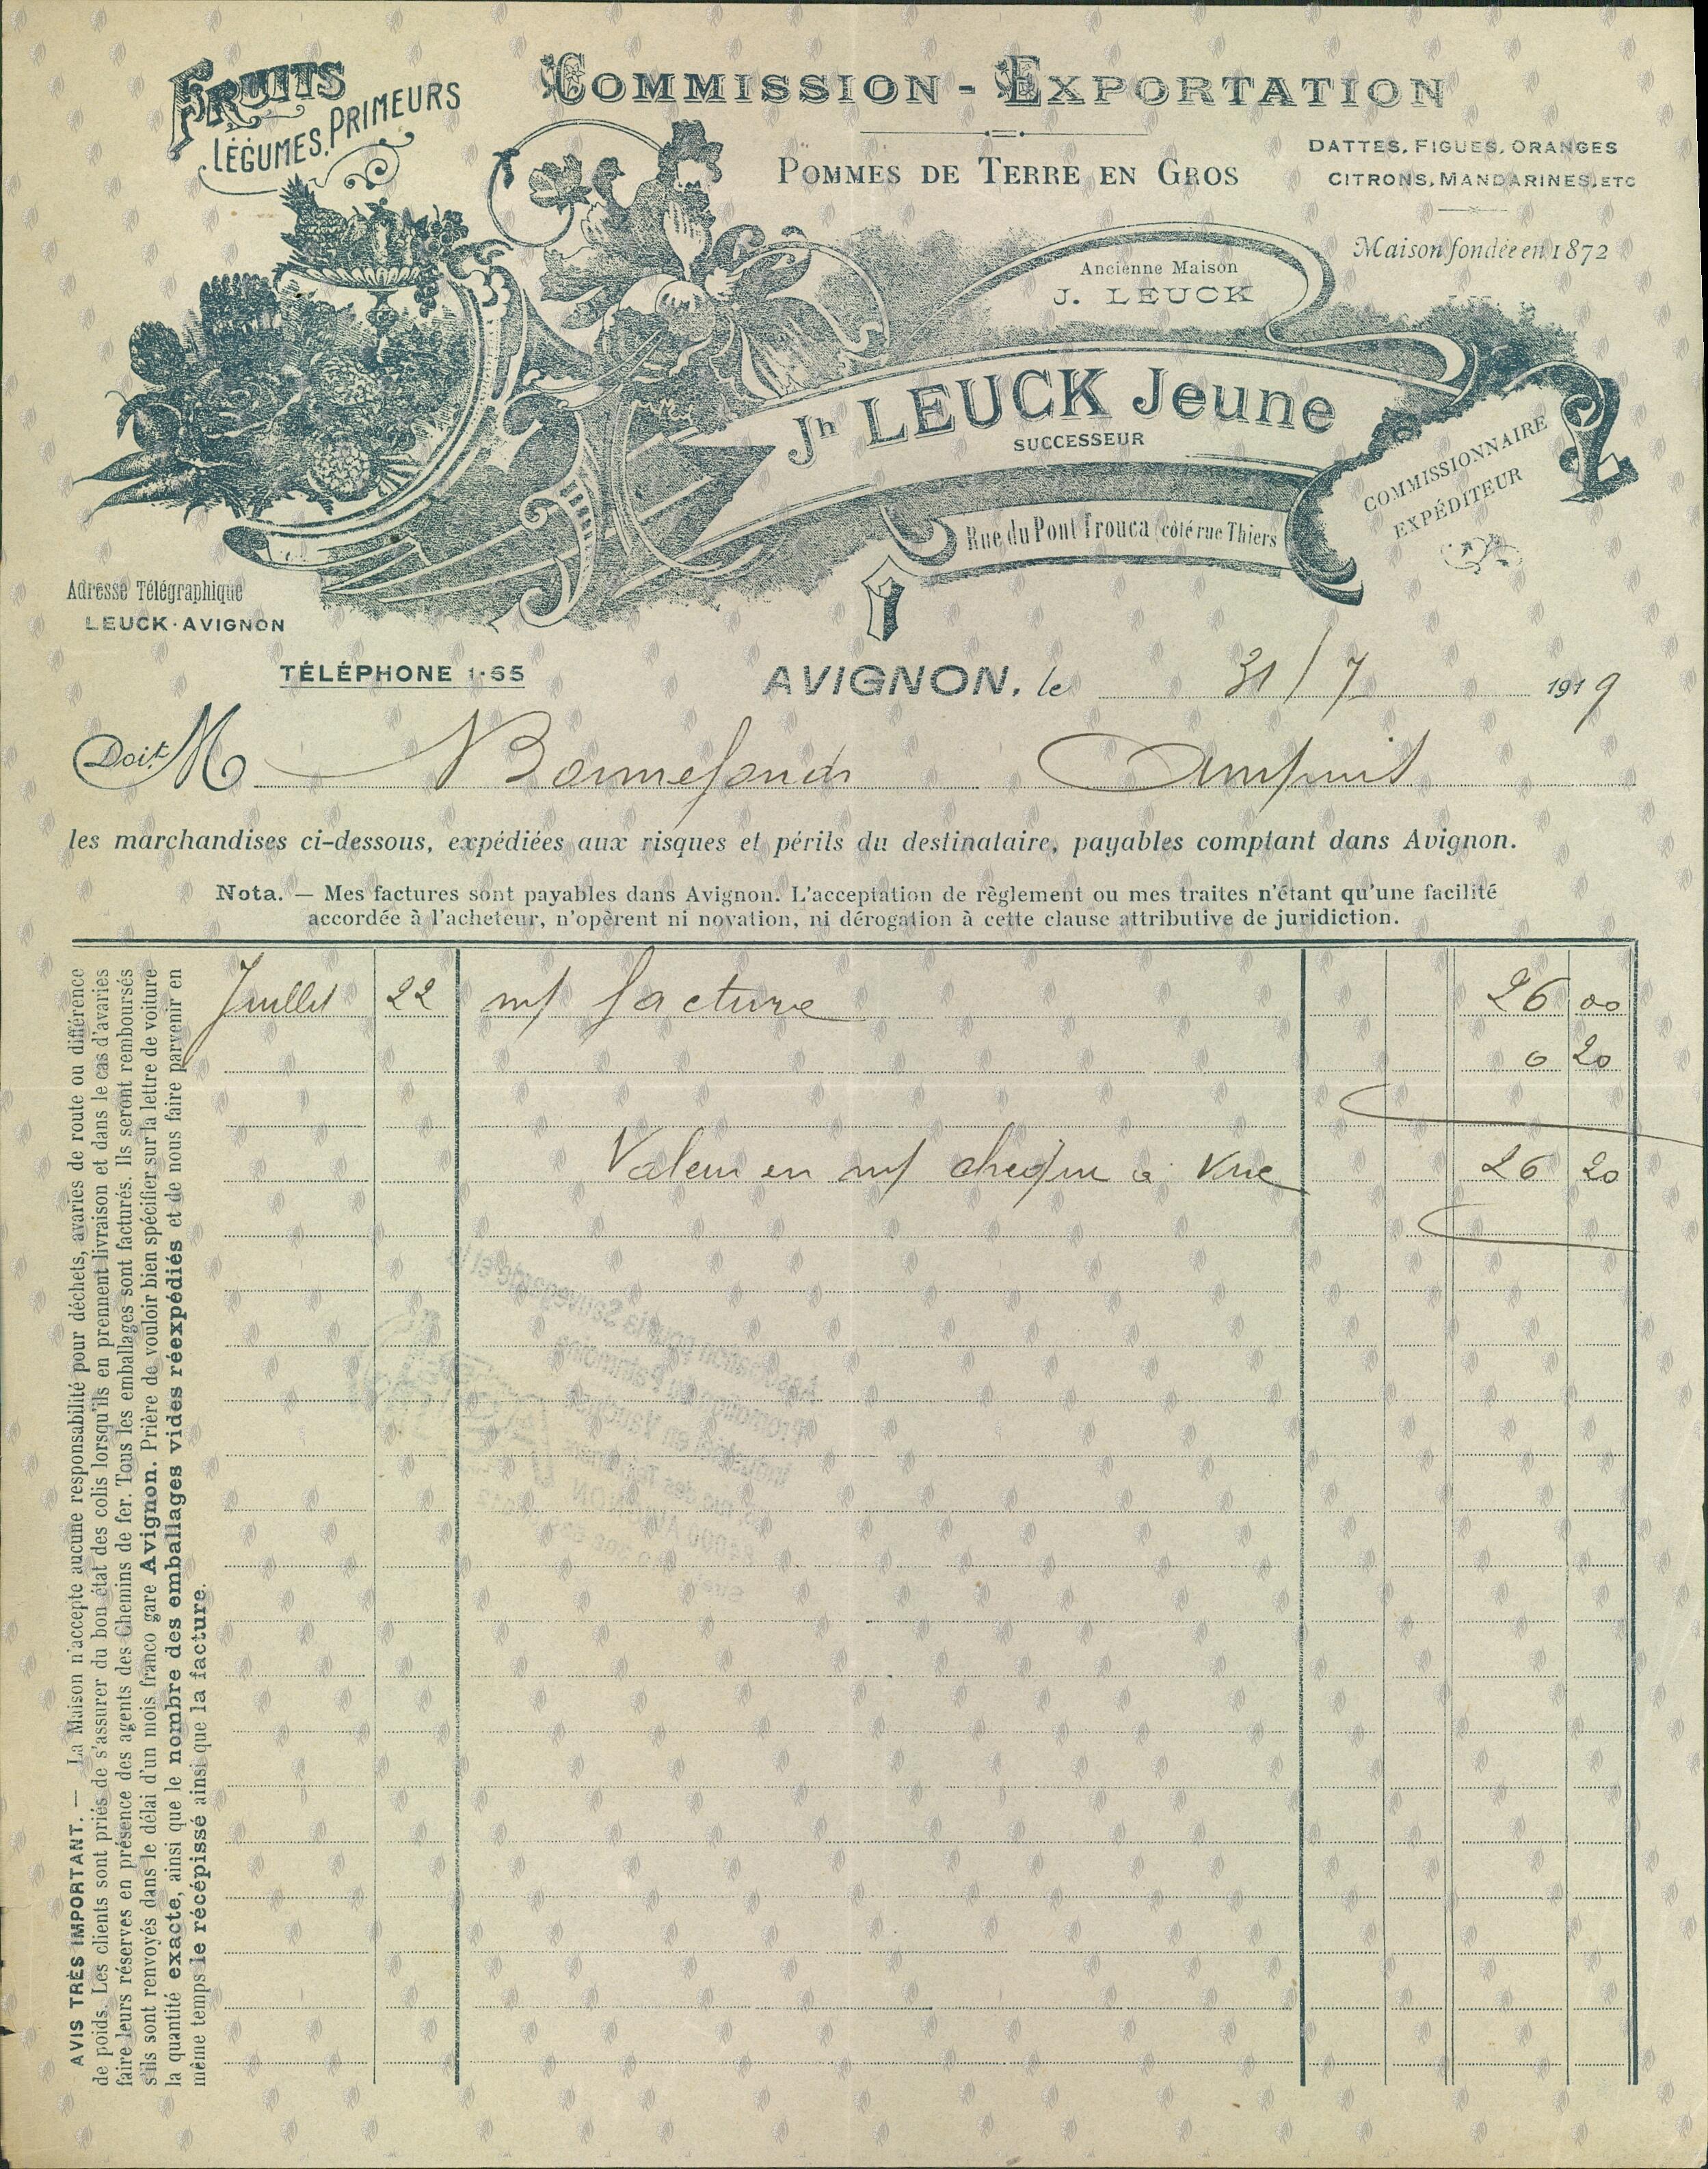 FRUITS
LÉGUMES, PRIMEURS
COMMISSION - EXPORTATION
POMMES DE TERRE EN GROS
DATTES, FIGUES, ORANGES
CITRONS, MANDARINES, ETC
Maison fondée en 1872
Ancienne Maison
J. LEUCK
Jh LEUCK Jeune
SUCCESSEUR
COMMISSIONNAIRE
EXPÉDITEUR
Rue du Pont Trouca (côté rue Thiers
Adresse Télégraphique
LEUCK-AVIGNON
TÉLÉPHONE 1-65
AVIGNON, le 31/7 1919
Doit M Bonnefond Ampuis
les marchandises ci-dessous, expédiées aux risques et périls du destinataire, payables comptant dans Avignon.
Nota. — Mes factures sont payables dans Avignon. L'acceptation de règlement ou mes traites n'étant qu'une facilité
accordée à l'acheteur, n'opèrent ni novation, ni dérogation à cette clause attributive de juridiction.
Juillet 22 m/ facture 26 00
0 20
Valeur en m/ cheque a vue 26 20
AVIS TRÈS IMPORTANT. — La Maison n'accepte aucune responsabilité pour déchets, avaries de route ou différence
de poids. Les clients sont priés de s'assurer du bon état des colis lorsqu'ils en prennent livraison et dans le cas d'avaries
faire leurs réserves en présence des agents des Chemins de fer. Tous les emballages sont facturés. Ils seront remboursés
s'ils sont renvoyés dans le délai d'un mois franco gare Avignon. Prière de vouloir bien spécifier sur la lettre de voiture
la quantité exacte, ainsi que le nombre des emballages vides réexpédiés et de nous faire parvenir en
même temps le récépissé ainsi que la facture.